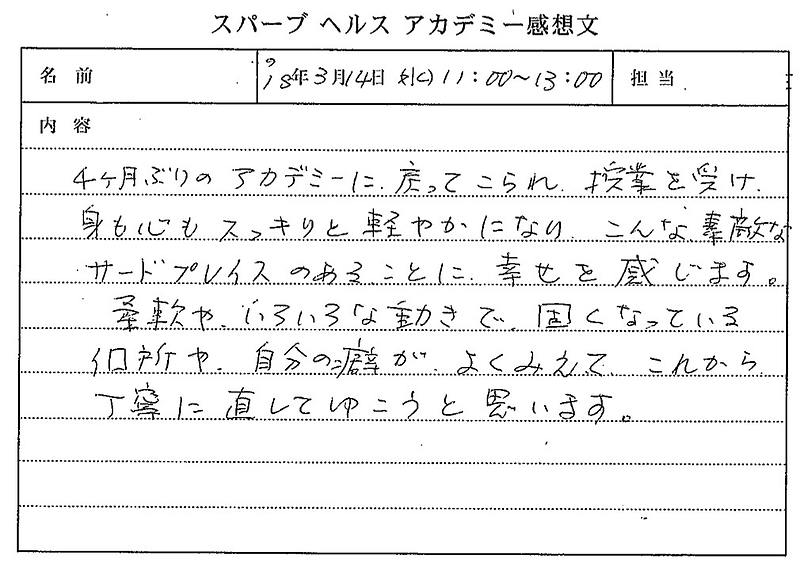 スパーブ ヘルス アカデミー感想文
名前 '18年3月14日 (水) 11:00~13:00 担当
内容
4ヶ月ぶりの アカデミーに、戻ってこられ、授業を受け、
身も心も スッキリと 軽やかになり、こんな、素敵な
サードプレイス のあることに、幸せを 感じます。
柔軟や、いろいろな動きで、固くなっている
個所や、自分の癖が、よくみえて、これから
丁寧に 直してゆこうと 思います。